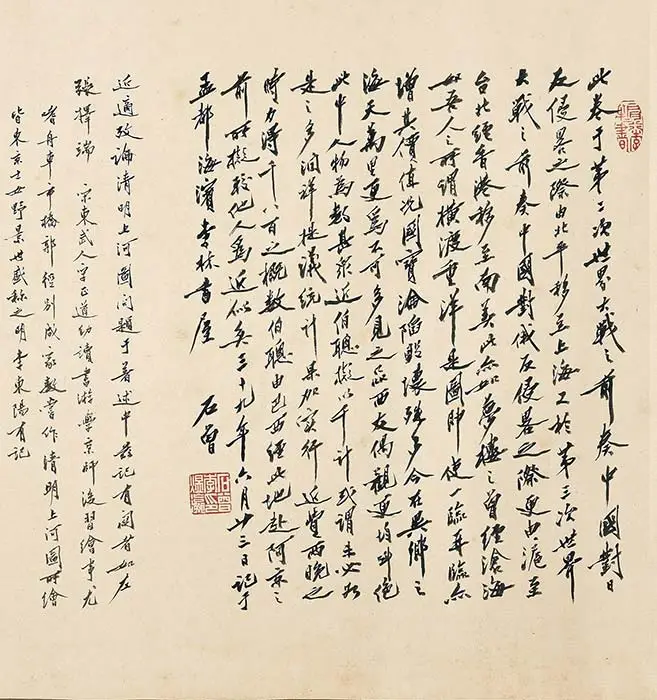 此卷于第二次世界大战之前奏中國對日
反侵畧之際由北平移至上海又於第三次世界
大戰之前奏中國對俄反侵畧之際更由滬至
台北經香港移至南美此亦如夢樓之曾經滄海
如吾人之所謂橫渡重洋是圖即使一臨再臨亦
增其價值况國寶淪陷毀壞殊多今在異鄉之
海天萬里更爲不可多見之品西友偶觀更均叫絕
此中人物爲數甚衆近伯聰擬以千計或謂未必如
是之多潤祥提議統計果加實行 近費兩晚之
時力得千八百之概數伯聰由巴西經此地赴阿京之
前所擬較他人爲近似矣三十九年六月廿三日記于
孟都海濱李林書屋 石曾
近適考論清明上河圖問題于著述中茲記有關者如左
張擇端 宋東武人字正道幼讀書游學京師後習繪事尤
嗜舟車市橋郭徑別成家數嘗作清明上河圖所繪
皆東京士女野景世盛稱之明李東陽有記